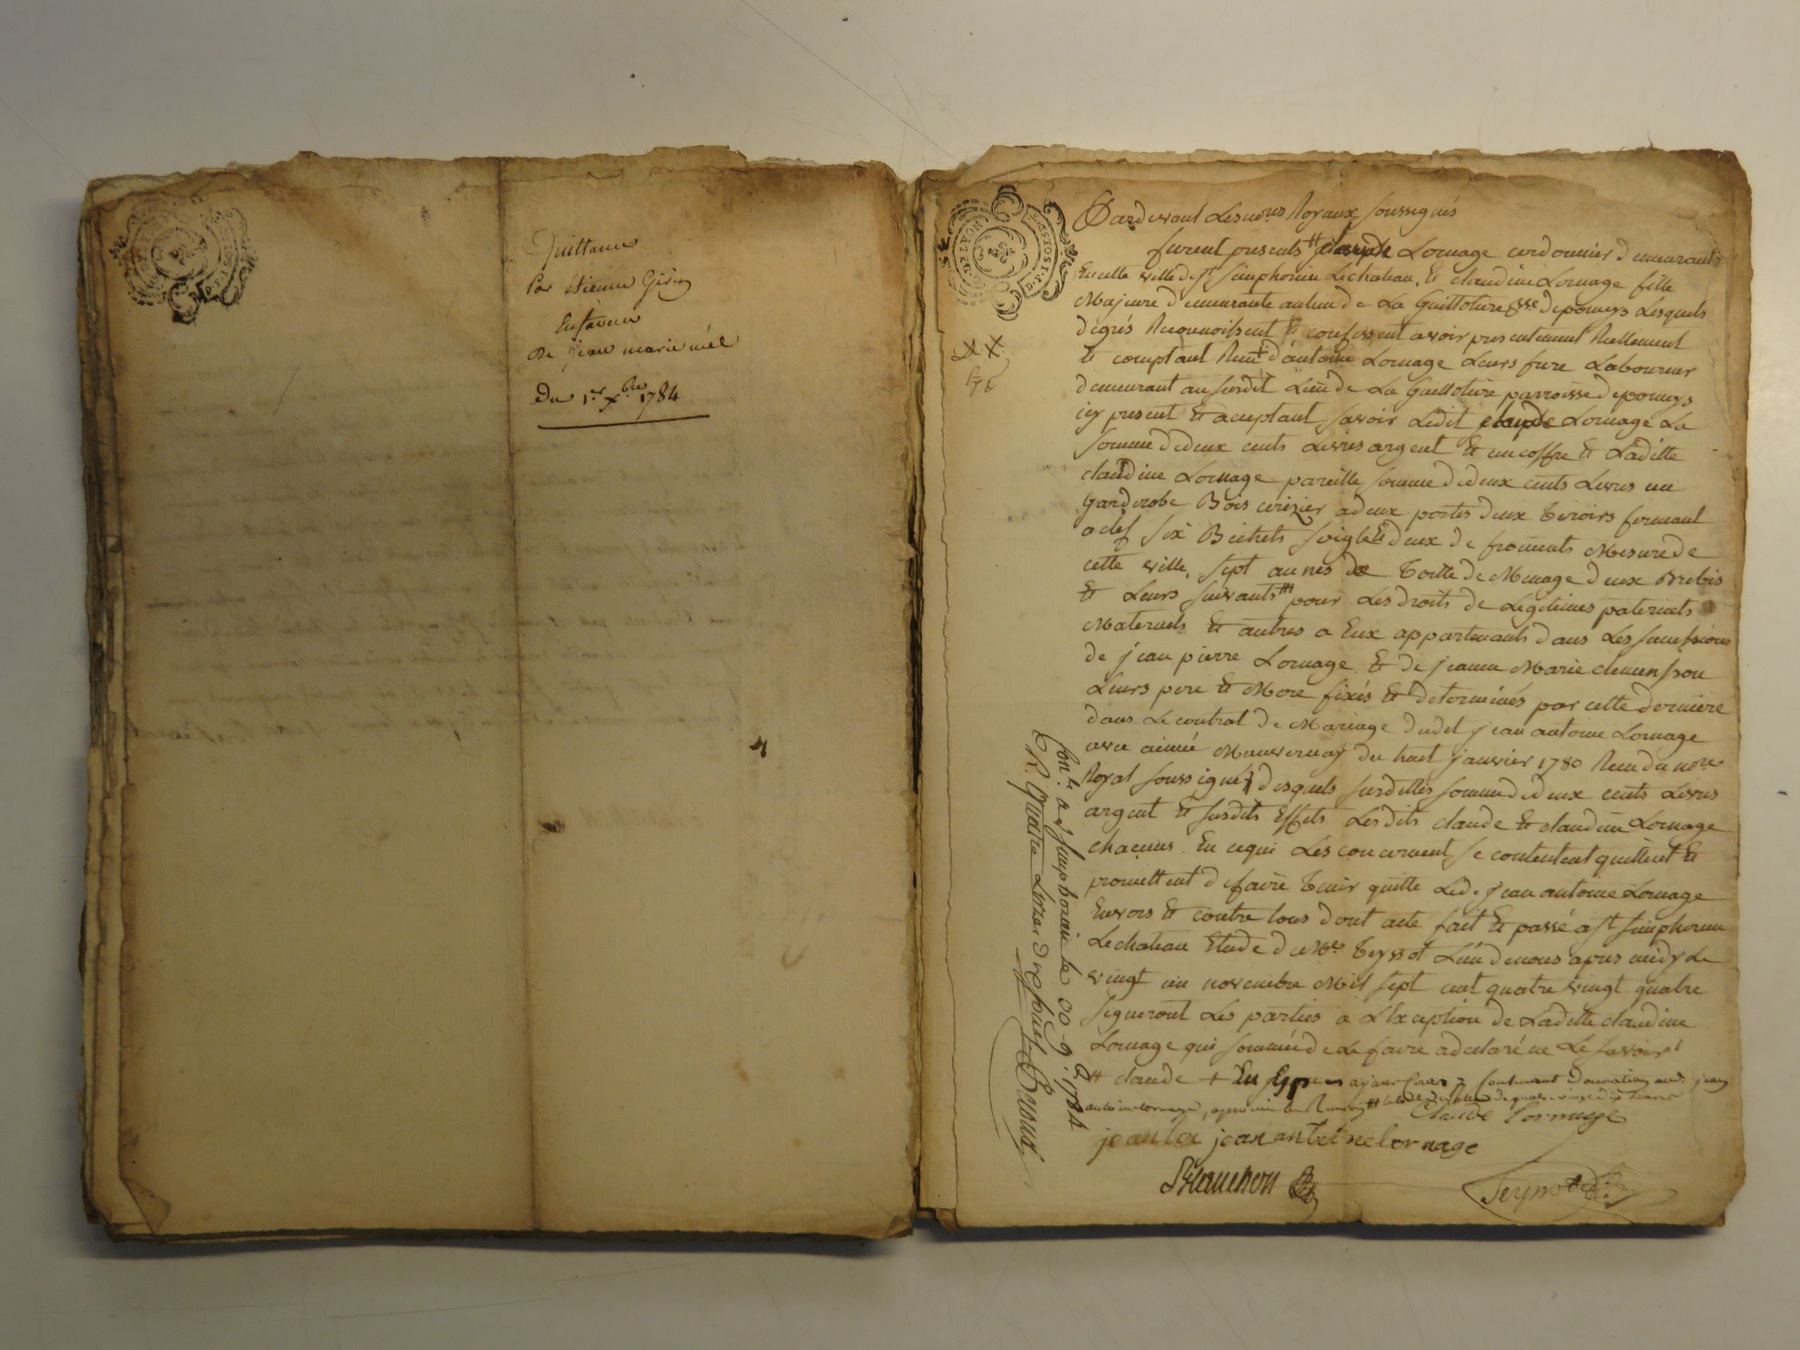 Quittance
Par etienne Girin
En faveur
de jean marie niél
Du 1er xbre 1784
Pardevant Les nores Royaux soussignés
furent presents claude Lornage cordonnier demeurant
En cette ville de st simphorien Lechateau, Et claudine Lornage fille
Majeure demeurante au lieu de La Guillotiere psse de pomeys Lesquels
de grés Reconnoissent Et confessent avoir presentement Reellement
Et comptant Recu d'antoine Lornage Leurs frere Laboureur
demeurant au susdit Lieu de La Guillotiere parroisse de pomeys
icy present Et acceptant savoir Ledit claude Lornage La
somme de deux cents Livres argent Et un coffre Et Laditte
claudine Lornage pareille somme de deux cents Livres un
garderobe Bois cerizier a deux portes deux tiroirs fermant
a clef six Bichets seigle Et deux de froments Mesure de
cette ville, sept aunes de toille de Menage deux Brebis
Et Leurs suivants pour Les droits de Legitimes paternels
Maternels Et autres a Eux appartenants dans Les successions
de jean pierre Lornage Et de jeanne Marie clemenson
Leurs pere Et Mere fixés Et determinés par cette derniere
dans Le contrat de Mariage dudit jean antoine Lornage
avec aimée Mauvernay du huit janvier 1780 Recu du nore
Royal soussigné desquels susdittes somme de deux cents Livres
argent Et susdits Effets Lesdits claude Et claudine Lornage
chacuns En ce qui Les concernent se contentent quittent Et
promettent de faire tenir quitte Led. jean antoine Lornage
Envers Et contre tous dont acte fait Et passé a st simphorien
Lechateau Etude de Me Teyssot L'un de nous apres midy Le
vingt un novembre Mil sept cent quatre vingt quatre
signeront Les parties a L'Exception de Laditte claudine
Lornage qui sommée de Le faire a declaré ne Le savoir
claude + En
antoine Lornage,
Claude Lornage
jean antoine lornage
Blanchon
Teyssot
Conlé a st simphorien le 30 9bre 1784
R. quatre Livres